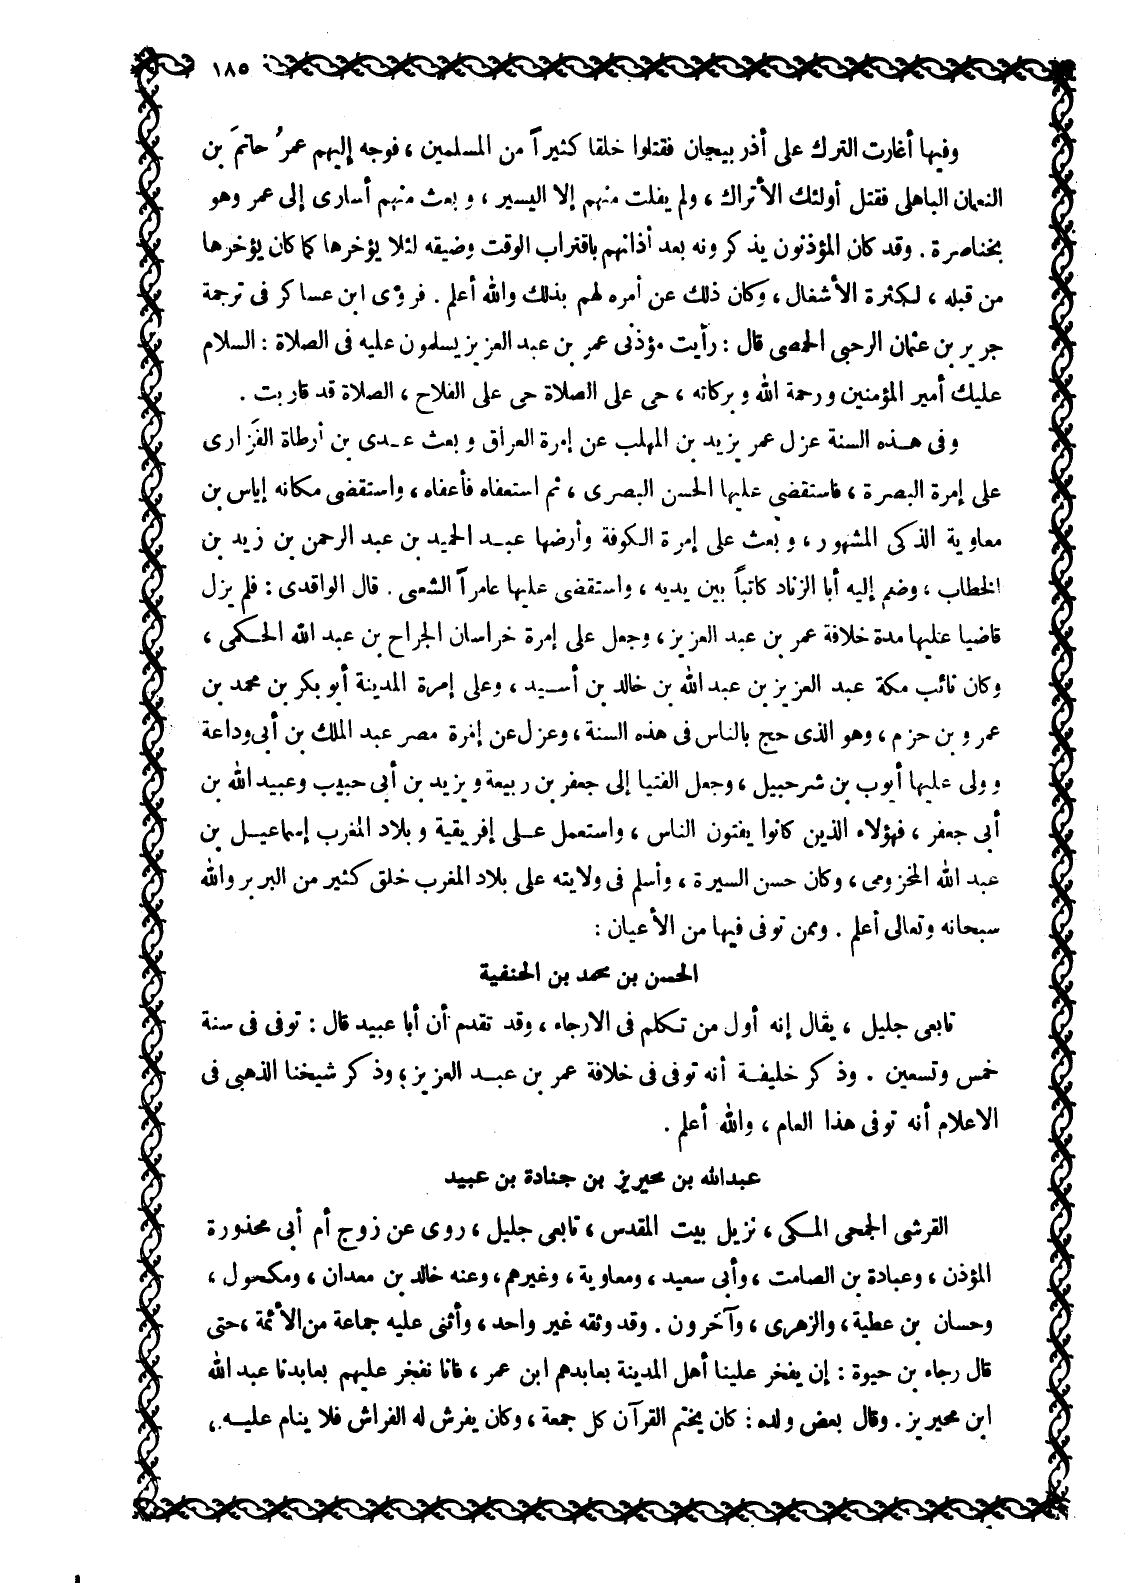 ١٨٥
وفيها أغارت الترك على أذربيجان فقتلوا خلقا كثيراً من المسلمين ، فوجه إليهم عمرُ حاتمَ بن
النعمان الباهلى فقتل أولئك الأتراك ، ولم يفلت منهم إلا اليسير ، وبعث منهم أسارى إلى عمر وهو
بخناصرة . وقد كان المؤذنون يذكرونه بعد أذانهم باقتراب الوقت وضيقه لئلا يؤخرها كما كان يؤخرها
من قبله ، لكثرة الأشغال ، وكان ذلك عن أمره لهم بذلك والله أعلم . فروى ابن عساكر فى ترجمة
جرير بن عثمان الرحبى الحمصى قال : رأيت مؤذنى عمر بن عبد العزيز يسلمون عليه فى الصلاة : السلام
عليك أمير المؤمنين ورحمة الله وبركاته ، حى على الصلاة حى على الفلاح ، الصلاة قد قاربت .
وفى هذه السنة عزل عمر يزيد بن المهلب عن إمرة العراق وبعث عدى بن أرطاة الفَزارى
على إمرة البصرة ، فاستقضى عليها الحسن البصرى ، ثم استعفاه فأعفاه ، واستقضى مكانه إياس بن
معاوية الذكى المشهور ، وبعث على إمرة الكوفة وأرضها عبد الحميد بن عبد الرحمن بن زيد بن
الخطاب ، وضم إليه أبا الزناد كاتباً بين يديه ، واستقضى عليها عامراً الشعبى . قال الواقدى : فلم يزل
قاضيا عليها مدة خلافة عمر بن عبد العزيز ، وجعل على إمرة خراسان الجراح بن عبد الله الحكمى ،
وكان نائب مكة عبد العزيز بن عبد الله بن خالد بن أسيد ، وعلى إمرة المدينة أبو بكر بن محمد بن
عمرو بن حزم ، وهو الذى حج بالناس فى هذه السنة ، وعزل عن إمرة مصر عبد الملك بن أبى وداعة
وولى عليها أيوب بن شرحبيل ، وجعل الفتيا إلى جعفر بن ربيعة ويزيد بن أبى حبيب وعبيد الله بن
أبى جعفر ، فهؤلاء الذين كانوا يفتون الناس ، واستعمل على إفريقية وبلاد المغرب إسماعيل بن
عبد الله المخزومى ، وكان حسن السيرة ، وأسلم فى ولايته على بلاد المغرب خلق كثير من البربر والله
سبحانه وتعالى أعلم . وممن توفى فيها من الأعيان :
الحسن بن محمد بن الحنفية
تابعى جليل ، يقال إنه أول من تكلم فى الارجاء ، وقد تقدم أن أبا عبيد قال : توفى فى سنة
خمس وتسعين . وذكر خليفة أنه توفى فى خلافة عمر بن عبد العزيز ، وذكر شيخنا الذهبى فى
الاعلام أنه توفى هذا العام ، والله أعلم .
عبدالله بن محيريز بن جنادة بن عبيد
القرشى الجمحى المكى ، نزيل بيت المقدس ، تابعى جليل ، روى عن زوج أم أبى محذورة
المؤذن ، وعبادة بن الصامت ، وأبى سعيد ، ومعاوية ، وغيرهم ، وعنه خالد بن معدان ، ومكحول ،
وحسان بن عطية ، والزهرى ، وآخرون . وقد وثقه غير واحد ، وأثنى عليه جماعة من الأئمة ، حتى
قال رجاء بن حيوة : إن يفخر علينا أهل المدينة بعابدهم ابن عمر ، فانا نفخر عليهم بعابدنا عبد الله
ابن محيريز . وقال بعض ولده : كان يختم القرآن كل جمعة ، وكان يفرش له الفراش فلا ينام عليه ،